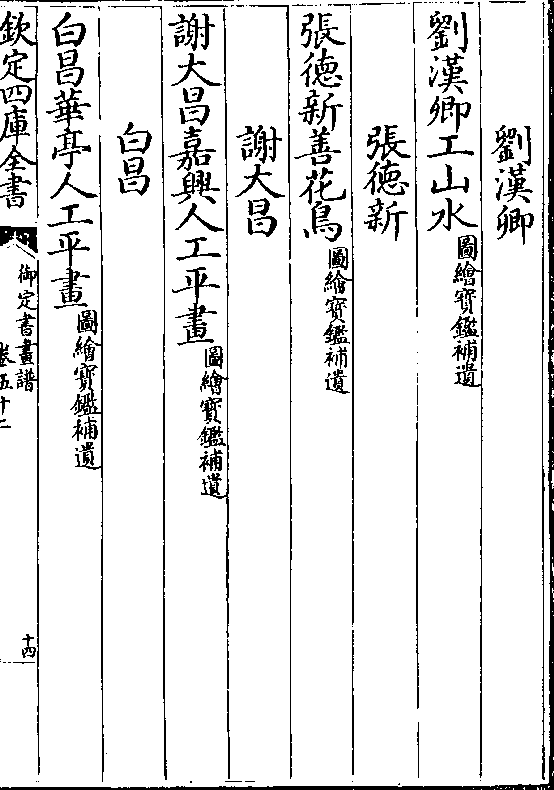 劉漢卿
劉漢卿工山水圖繪寶鑑補遺
張徳新
張徳新善花鳥圖繪寶鑑補遺
謝大昌
謝大昌嘉興人工平畫圖繪寶鑑補遺
白昌
白昌華亭人工平畫圖繪寶鑑補遺
欽定四庫全書
御定書畫譜
卷五十二
十四